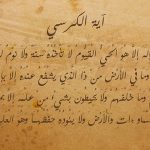 آية الكرسي
إلا هو الحي القيوم لا تأخذه سنة ولا نوم
وما في الأرض من ذا الذي يشفع عنده إلا
وما خلفهم ولا يحيطون بشيء من علمه إلا
والأرض ولا يئوده حفظهما وهو